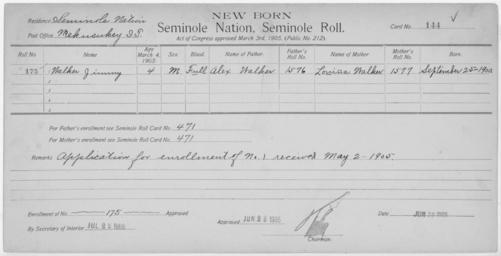 NEW BORN
Residence Seminole Nation
Seminole Nation, Seminole Roll.
Card No. 144
Post Office Mekusukey I.T.
Act of Congress approved March 3rd, 1905, (Public No. 212).
Roll No. Name Age March 4, 1905 Sex. Blood. Name of Father. Father's Roll No. Name of Mother. Mother's Roll No. Born.
175 Walker Jimmy 4 M. Full Alex Walker 1576 Louisa Walker 1577 September 25-1900
For Father's enrollment see Seminole Roll Card No. 471
For Mother's enrollment see Seminole Roll Card No. 471
Remarks Application for enrollment of No. 1 received May 2-1905.
Enrollment of No. 175 Approved
By Secretary of Interior JUL 1905
Approved JUN 1905
Chairman.
Date JUN 1905